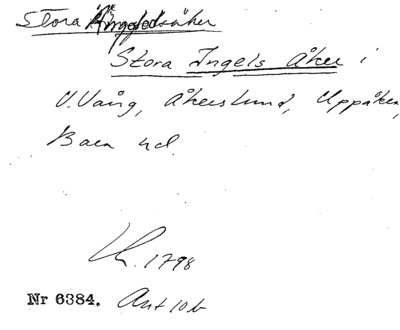 Stora Ängelsåker
Stora Ingels Åker i
V. Vång, Åkerslund, Uppåkra,
Bara hd.
Lh. 1798
Nr 6384. Ant 10 b